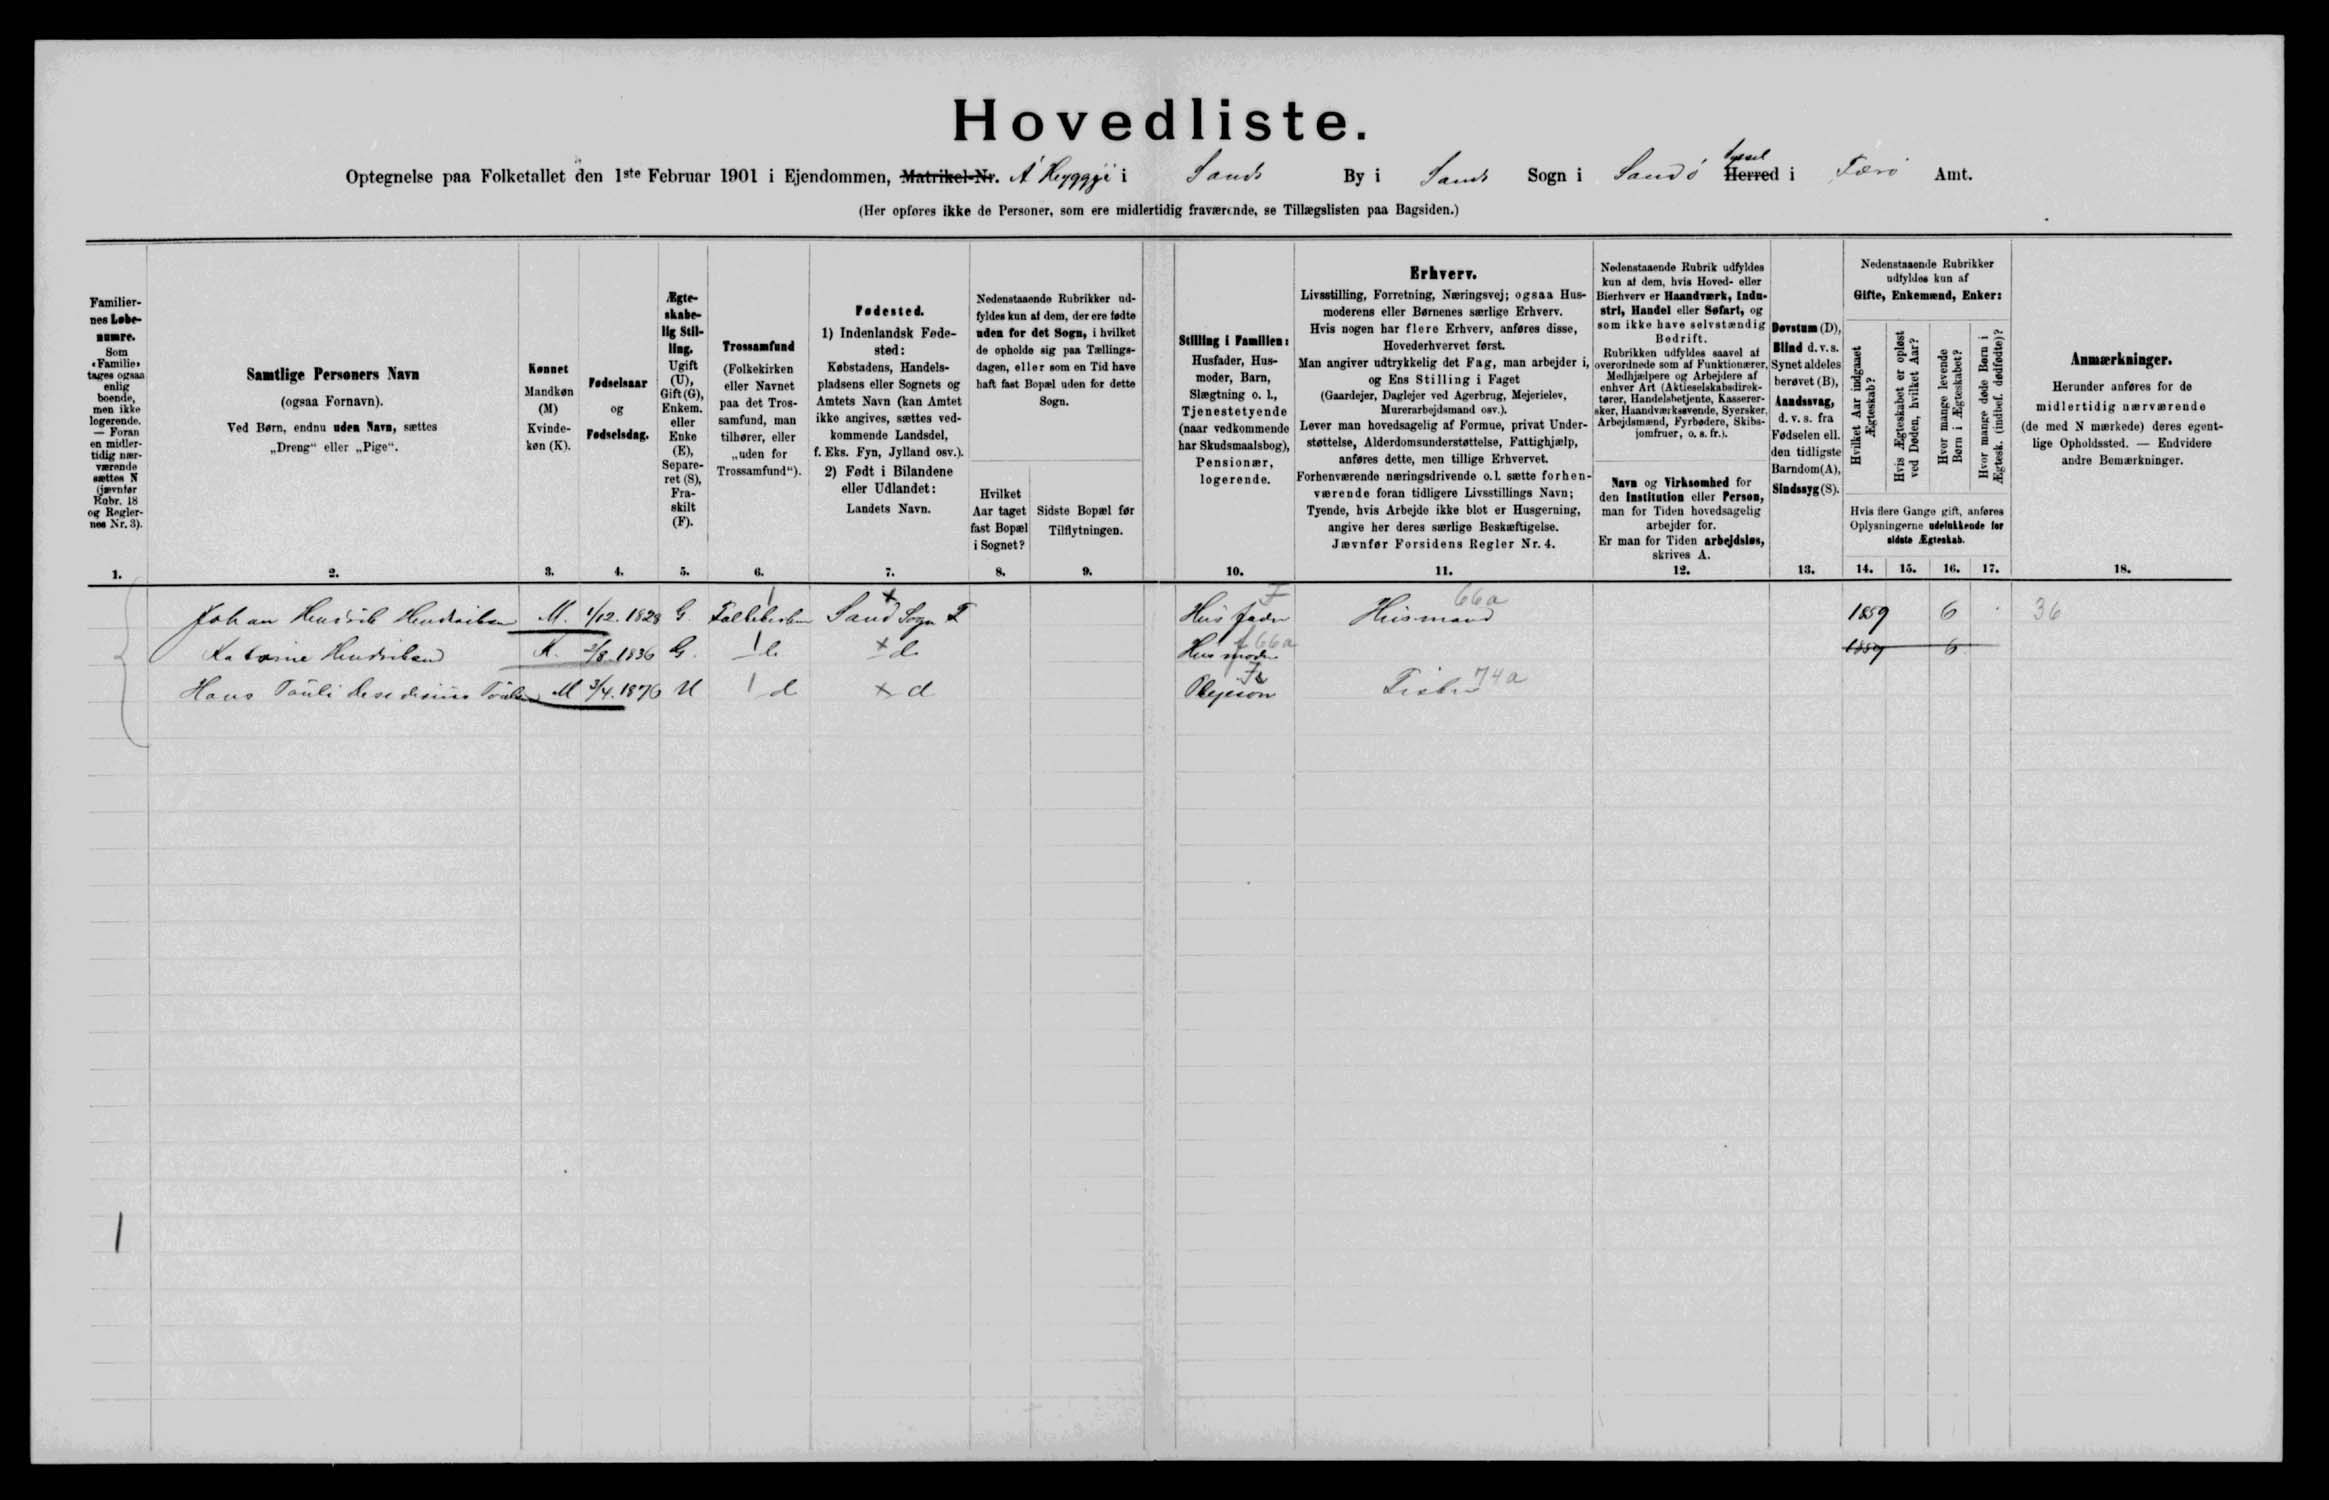 Hovedliste.
Optegnelse paa Folketallet den 1ste Februar 1901 i Ejendommen, Matrikel-Nr. Á Heyggje i Sands By i Sands Sogn i Sandø Herred Syssel i Færø Amt.
(Her opføres ikke de Personer, som ere midlertidig fraværende, se Tillægslisten paa Bagsiden.)
Familier-
nes Løbe-
numre.
Som
«Familie»
tages ogsaa
enlig
boende,
men ikke
logerende.
— Foran
en midler-
tidig nær-
værende
sættes N
(jævnfør
Rubr. 18
og Regler-
nes Nr. 3).
1.
Samtlige Personers Navn
(ogsaa Fornavn).
Ved Børn, endnu uden Navn, sættes
„Dreng“ eller „Pige“.
2.
Kønnet
Mandkøn
(M)
Kvinde-
køn (K).
3.
Fødselsaar
og
Fødselsdag.
4.
Ægte-
skabe-
lig Stil-
ling.
Ugift
(U),
Gift (G),
Enkem.
eller
Enke
(E),
Separe-
ret (S),
Fra-
skilt
(F).
5.
Trossamfund
(Folkekirken
eller Navnet
paa det Tros-
samfund, man
tilhører, eller
„uden for
Trossamfund“).
6.
Fødested.
1) Indenlandsk Føde-
sted:
Købstadens, Handels-
pladsens eller Sognets og
Amtets Navn (kan Amtet
ikke angives, sættes ved-
kommende Landsdel,
f. Eks. Fyn, Jylland osv.).
2) Født i Bilandene
eller Udlandet:
Landets Navn.
7.
Nedenstaaende Rubrikker ud-
fyldes kun af dem, der ere fødte
uden for det Sogn, i hvilket
de opholde sig paa Tællings-
dagen, eller som en Tid have
haft fast Bopæl uden for dette
Sogn.
Hvilket
Aar taget
fast Bopæl
i Sognet?
8.
Sidste Bopæl før
Tilflytningen.
9.
Stilling i Familien:
Husfader, Hus-
moder, Barn,
Slægtning o. l.,
Tjenestetyende
(naar vedkommende
har Skudsmaalsbog),
Pensionær,
logerende.
10.
Erhverv.
Livsstilling, Forretning, Næringsvej; ogsaa Hus-
moderens eller Børnenes særlige Erhverv.
Hvis nogen har flere Erhverv, anføres disse,
Hovederhvervet først.
Man angiver udtrykkelig det Fag, man arbejder i,
og Ens Stilling i Faget
(Gaardejer, Daglejer ved Agerbrug, Mejerielev,
Murerarbejdsmand osv.).
Lever man hovedsagelig af Formue, privat Under-
støttelse, Alderdomsunderstøttelse, Fattighjælp,
anføres dette, men tillige Erhvervet.
Forhenværende næringsdrivende o. l. sætte forhen-
værende foran tidligere Livsstillings Navn;
Tyende, hvis Arbejde ikke blot er Husgerning,
angive her deres særlige Beskæftigelse.
Jævnfør Forsidens Regler Nr. 4.
11.
Nedenstaaende Rubrik udfyldes
kun af dem, hvis Hoved- eller
Bierhverv er Haandværk, Indu-
stri, Handel eller Søfart, og
som ikke have selvstændig
Bedrift.
Rubrikken udfyldes saavel af
overordnede som af Funktionærer,
Medhjælpere og Arbejdere af
enhver Art (Aktieselskabsdirek-
tører, Handelsbetjente, Kasserer-
sker, Haandværkssvende, Syersker,
Arbejdsmænd, Fyrbødere, Skibs-
jomfruer, o. s. fr.).
Navn og Virksomhed for
den Institution eller Person,
man for Tiden hovedsagelig
arbejder for.
Er man for Tiden arbejdsløs,
skrives A.
12.
Døvstum (D),
Blind d. v. s.
Synet aldeles
berøvet (B),
Aandssvag,
d. v. s. fra
Fødselen ell.
den tidligste
Barndom (A),
Sindssyg (S).
13.
Nedenstaaende Rubrikker
udfyldes kun af
Gifte, Enkemænd, Enker:
Hvilket Aar indgaaet
Ægteskab?
Hvis Ægteskabet er opløst
ved Døden, hvilket Aar?
Hvor mange levende
Børn i Ægteskabet?
Hvor mange døde Børn i
Ægtesk. (indbef. dødfødte)?
Hvis flere Gange gift, anføres
Oplysningerne udelukkende for
sidste Ægteskab.
14. 15. 16. 17.
Anmærkninger.
Herunder anføres for de
midlertidig nærværende
(de med N mærkede) deres egent-
lige Opholdssted. — Endvidere
andre Bemærkninger.
18.
Johan Hendrik Hendriksen M. 1/12. 1828 G. Folkekirken Sand Sogn F Husfader F Husmand 66a 1859 6 36
Katrine Hendriksen K. 2/8. 1836 G. 1 d + d Husmoder f 66a 1859 6
Hans Pauli M 3/4. 1876 U 1 d + d Plejesøn Fisker 74a
1